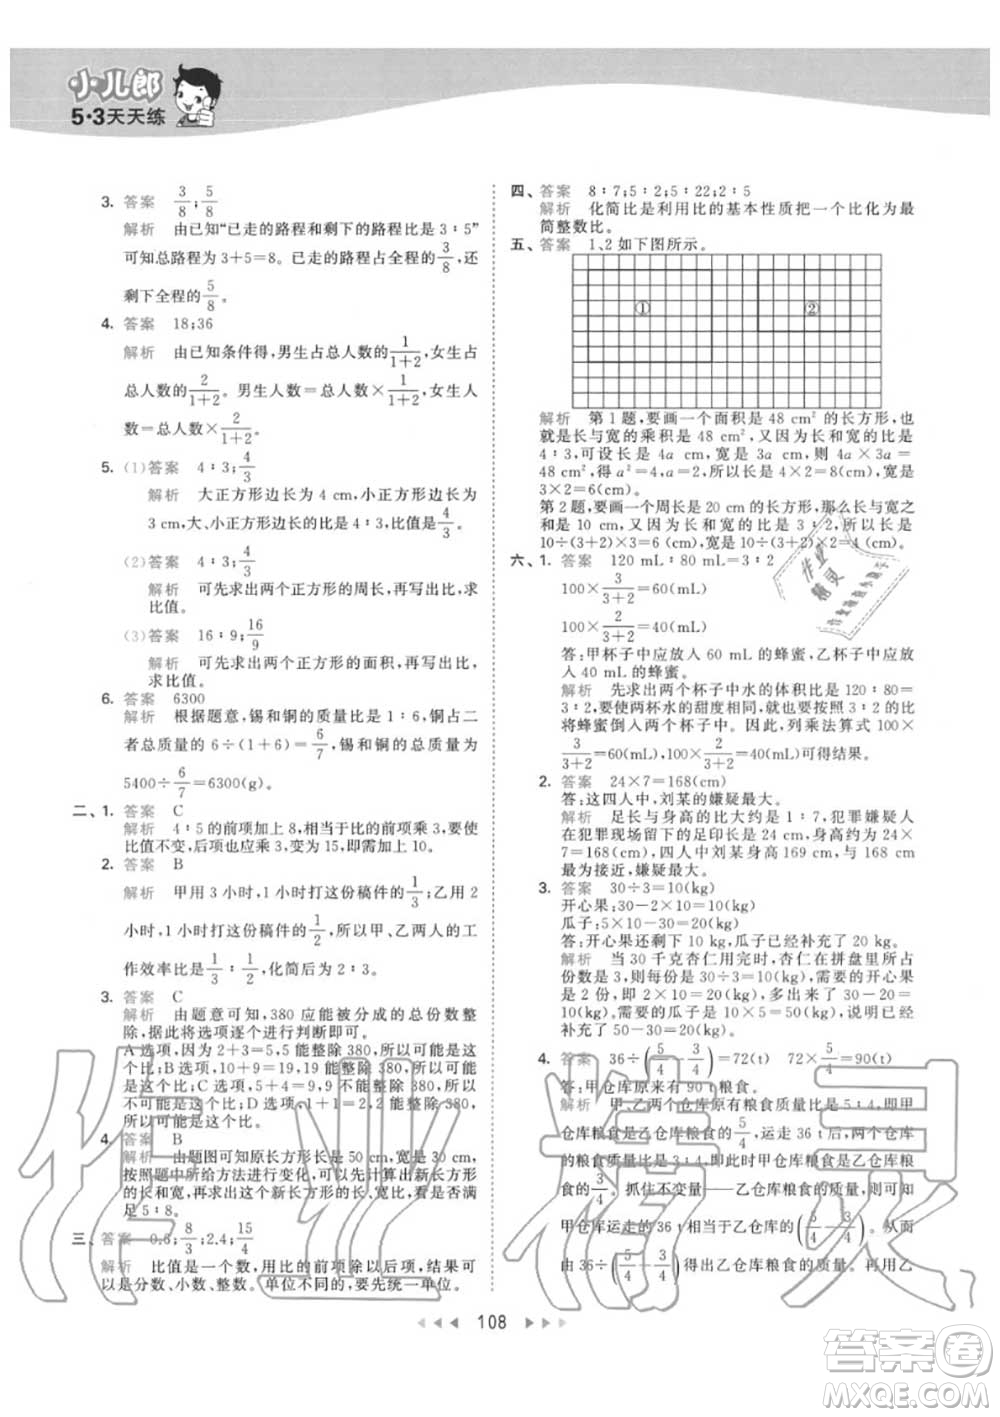 小儿郎
5·3天天练
3. 答案 3/8;5/8
解析 由已知“已走的路程和剩下的路程比是3∶5”
可知总路程为3+5=8。已走的路程占全程的3/8,还
剩下全程的5/8。
4. 答案 18;36
解析 由已知条件得,男生占总人数的1/(1+2),女生占
总人数的2/(1+2)。男生人数=总人数×1/(1+2),女生人
数=总人数×2/(1+2)。
5. (1)答案 4∶3;4/3
解析 大正方形边长为4 cm,小正方形边长为
3 cm,大、小正方形边长的比是4∶3,比值是4/3。
(2)答案 4∶3;4/3
解析 可先求出两个正方形的周长,再写出比,求
比值。
(3)答案 16∶9;16/9
解析 可先求出两个正方形的面积,再写出比,
求比值。
6. 答案 6300
解析 根据题意,锡和铜的质量比是1∶6,铜占二
者总质量的6÷(1+6)=6/7,锡和铜的质量和为
5400÷6/7=6300(g)。
二、1. 答案 C
解析 4∶5的前项加上8,相当于比的前项乘3,要使
比值不变,后项也应乘3,变为15,即加上10。
2. 答案 B
解析 甲用3小时,1小时打这份稿件的1/3;乙用2
小时,1小时打这份稿件的1/2,所以甲、乙两人的工
作效率比是1/3∶1/2,化简后为2∶3。
3. 答案 C
解析 由题意可知,380应能被分成的总份数整
除,据此将选项逐个进行判断即可。
A选项,因为2+3=5能整除380,所以可能是这个
比;B选项,因为1+3=4能整除380,所以可能是这
个比;C选项,因为5+4=9不能整除380,所以
不可能是这个比;D选项,1+1=2能整除380,
所以可能是这个比。
4. 答案 B
解析 由题图可知原长方形长是50 cm,宽是30 cm,
按照题中所给方法进行变化,可以计算出新长方形
的长和宽,再求出这个新长方形的长、宽之比,看是否满
足5∶8。
三、答案 0.6;8/3;2.4;15/4
解析 比值是一个数,用比的前项除以后项,结果可
以是分数、小数、整数。单位不同的,要先统一单位。
四、答案 8∶7;5∶2;5∶22;2∶5
解析 化简比是利用比的基本性质把一个比化为最
简整数比。
五、答案 1、2如下图所示。
① ②
解析 第1题,要画一个面积是48 cm²的长方形,也
就是长与宽的乘积是48 cm²,又因为长和宽的比是
4∶3,可设长是4a cm,宽是3a cm,所以4a×3a=
48 cm²,得a²=4,a=2,所以长是4×2=8(cm),宽是
3×2=6(cm)。
第2题,要画一个周长是20 cm的长方形,那么长与宽之
和是10 cm,又因为长和宽的比是3∶2,所以长是
10÷(3+2)×3=6(cm),宽是10÷(3+2)×2=4(cm)。
六、1. 答案 120 mL∶80 mL=3∶2
100×3/(3+2)=60(mL)
100×2/(3+2)=40(mL)
答:甲杯子中应放入60 mL的蜂蜜,乙杯子中应放入
40 mL的蜂蜜。
解析 先求出两个杯子中水的体积比是120∶80=
3∶2,要使两杯水的甜度相同,也要按照3∶2的比
将蜂蜜倒入两个杯子中。因此,列乘法算式100×
3/(3+2)=60(mL),100×2/(3+2)=40(mL)可得结果。
2. 答案 24×7=168(cm)
答:这四人中,刘某的嫌疑最大。
解析 足长与身高的比大约是1∶7,犯罪嫌疑人
在犯罪现场留下的足印长是24 cm,身高约为24×
7=168(cm),四人中刘某身高169 cm,与168 cm
最为接近,嫌疑最大。
3. 答案 30÷3=10(kg)
开心果:30-2×10=10(kg)
瓜子:5×10-30=20(kg)
答:开心果还剩下10 kg,瓜子已经补充了20 kg。
解析 当30千克杏仁用完时,杏仁在拼盘里所占
份数是3,则每份是30÷3=10(kg),需要的开心果
是2份即2×10=20(kg),所以开心果还剩下30-
20=10(kg)。需要的瓜子是5×10=50(kg),所以
已经补充了50-30=20(kg)。
4. 答案 36÷(5/4-3/4)=72(t) 72×5/4=90(t)
答:甲仓库原来有90 t粮食。
解析 甲、乙两个仓库原有粮食质量比是5∶4,即甲
仓库粮食质量是乙仓库粮食的5/4,运走36 t后,甲仓
库和乙仓库粮食质量比是3∶4,即甲仓库粮食是乙仓库粮食
的3/4。抓住不变量——乙仓库粮食的质量,可以知道
甲仓库运走的36 t相当于乙仓库的(5/4-3/4)。从而
由36÷(5/4-3/4)得出乙仓库粮食的质量。再用乙
108
作业精灵
作业精灵
答案卷
MXQE.COM